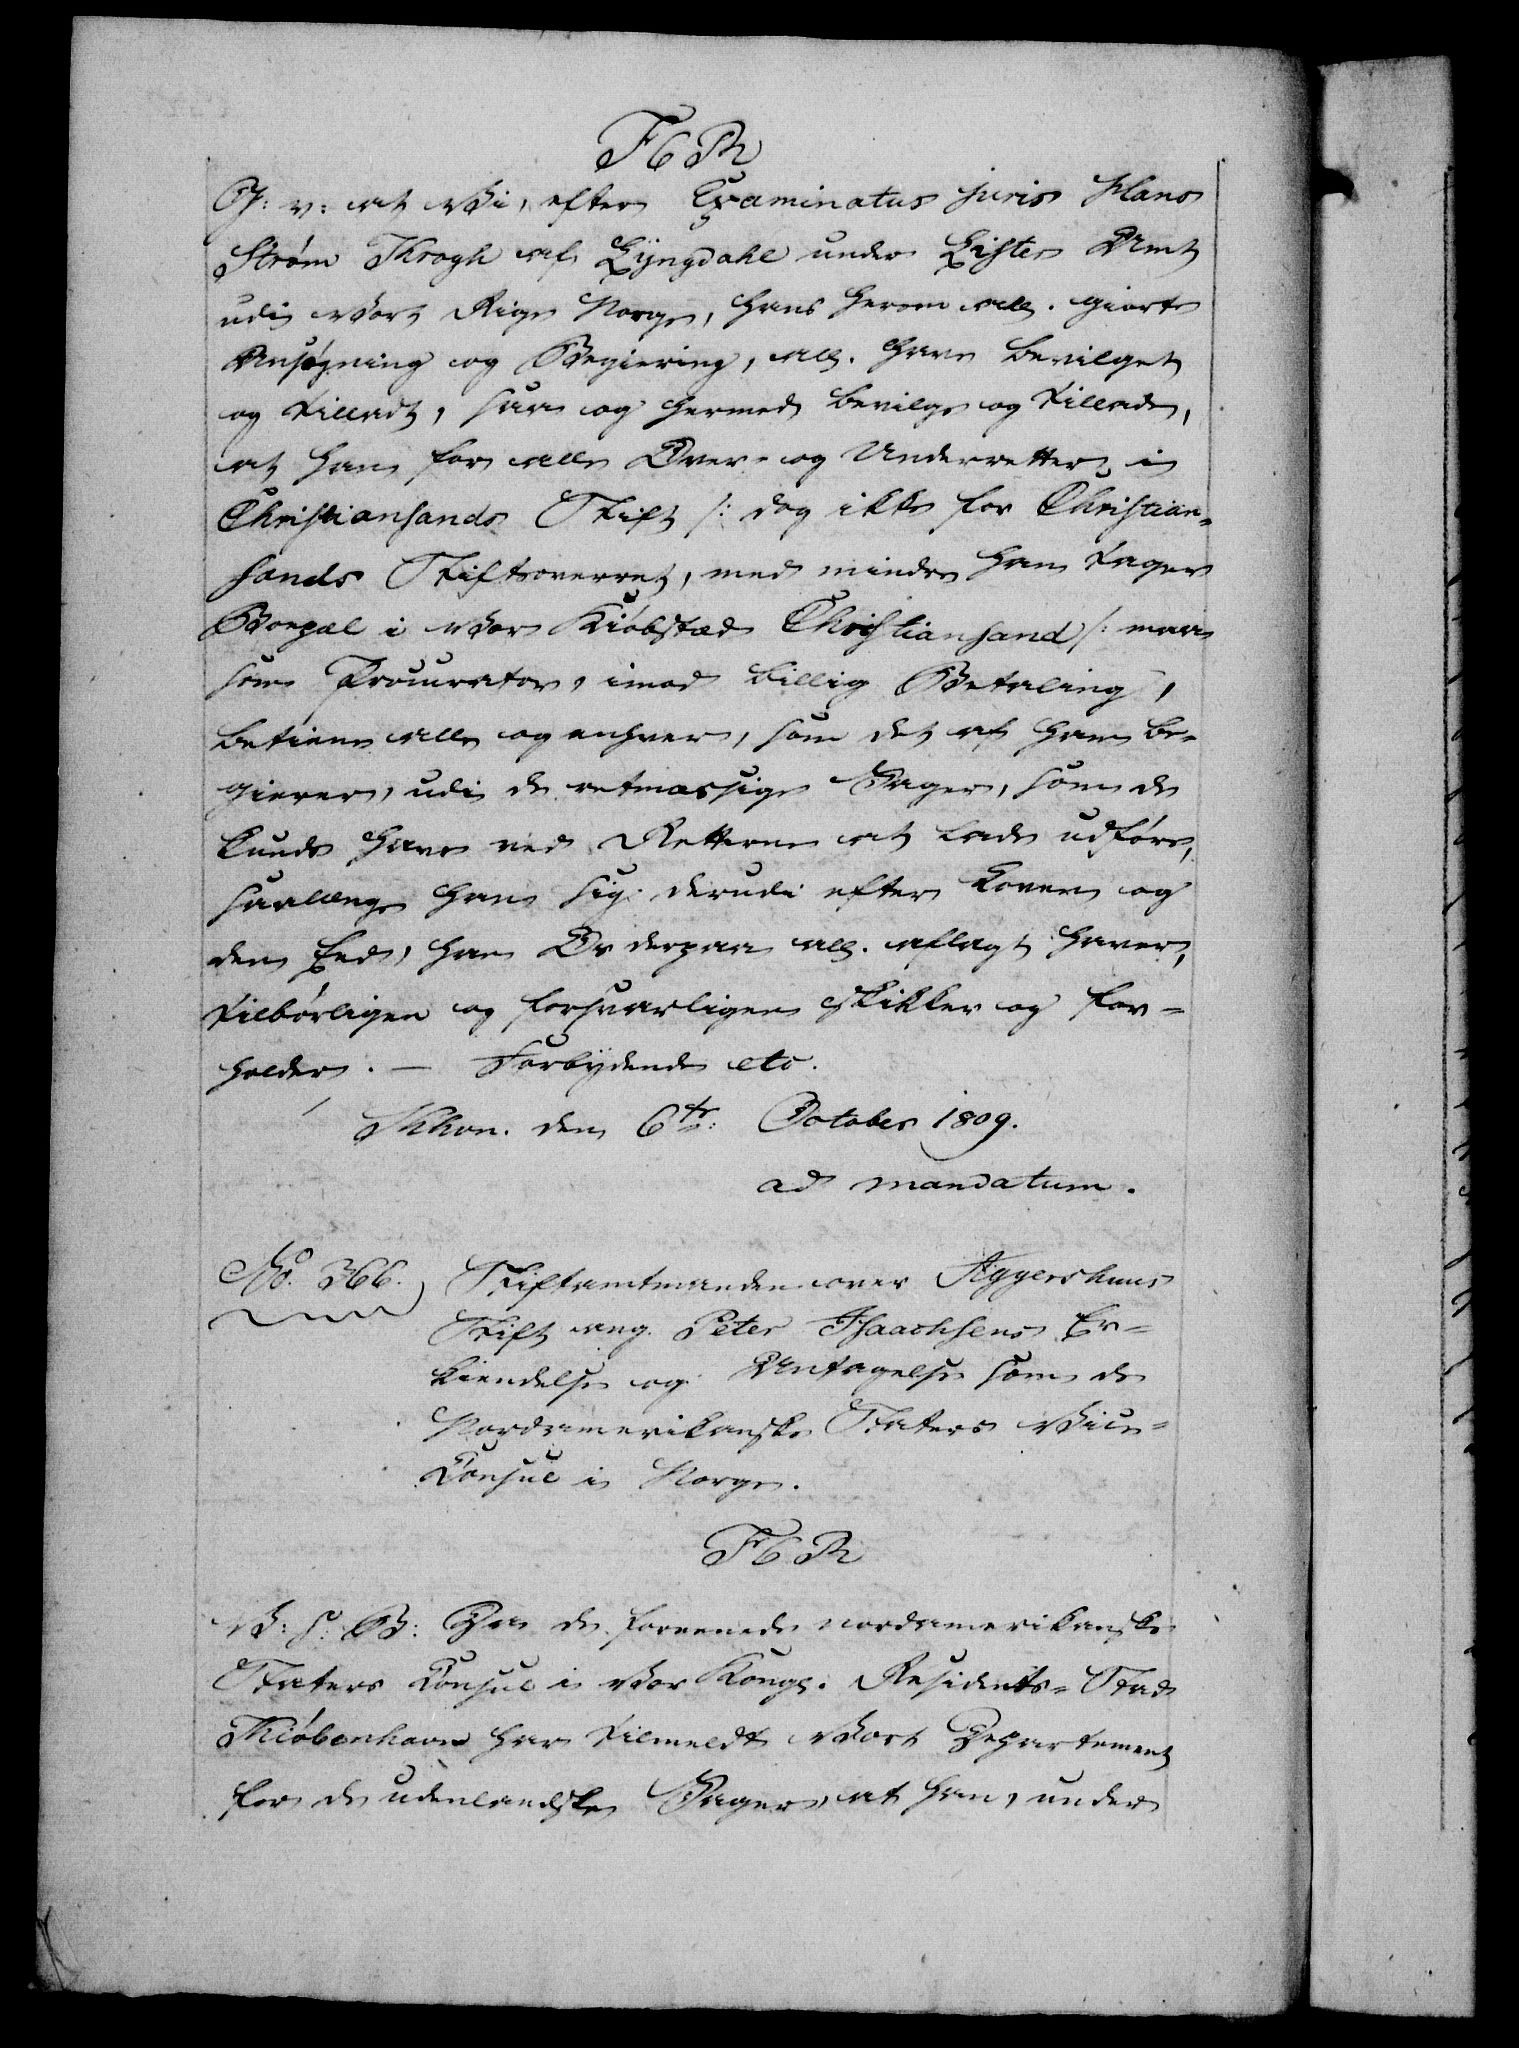 F 6 R
G: v: at Vi, efter Examinatus juris Hans
Strøm Krogh af Lyngdahl under Lister Amt
udi Vort Rige Norge, hans herom all. giorte
Ansøgning og Begiering, all. have bevilget
og tilladt, saa og hermed bevilge og tillade,
at han for alle Over- og Underretter i
Christiansands Stift /: dog ikke for Christian-
sands Stiftsoverret, med mindre han tager
Boepæl i Vor Kiøbstæd Christiansand /: maa
som Procurator, imod billig Betaling,
betiene alle og enhver, som det af ham be-
gierer, udi de retmæssige Sager, som de
kunde have ved Retterne at lade udføre,
saalænge han sig derudi efter Loven og
den Eed, han Os derpaa all. aflagt haver,
tilbørligen og forsvarligen skikker og for-
holder. — Forbydende etc.
Khvn. den 6te: October 1809.
ad mandatum.
No. 366. Stiftamtmanden over Aggershuus
Stift ang. Peter Isaachsens Er-
kiendelse og Antagelse som de
Nordamerikanske Staters Vice-
Consul i Norge.
F 6 R
V: S: G: Da de forenede nordamerikanske
Staters Consul i Vor Kongl. Residents-Stad
Kiøbenhavn har tilmeldt Vort Departement
for de udenlandske Sager, at han, under